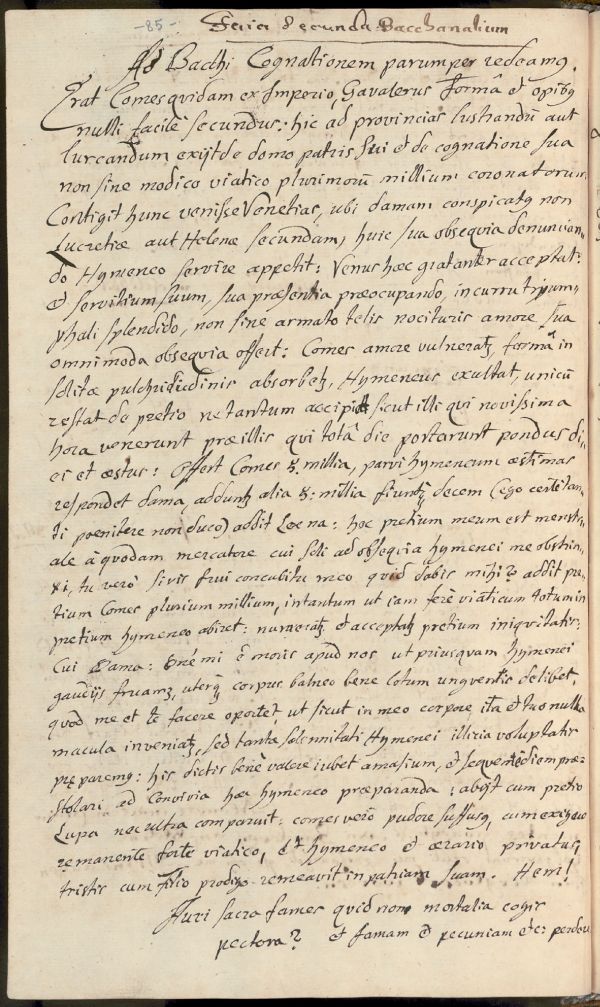 -85-
Feria Secunda Bacchanalium
Ad Bacchi Cognationem parumper redeamq.
Erat Comes quidam ex Imperio, Gavalerus formâ et opibq
nulli facile secundus: hic ad provincias lustrandū aut
lurcandum exijt de domo patris sui et de cognatione sua
non sine modico viatico plurimorū millium coronatorum
Contigit hunc venisse Venetias, ubi damam conspicatq non
Lucretiæ aut Helenæ secundam, huic sua obsequia denuncian-
do Hymeneo servire appetit: Venus hæc gratanter acceptat:
et servitium suum, sua præsentia præocupando, in curru trium-
phali splendido, non sine armato telis nocituris amore, sua
omnimoda obsequia offert: Comes amore vulneratq, formâ in
solitæ pulchritudinis absorbetq, Hymeneus exultat, unicū
restat de pretio ne tantum accipiat sicut illi qui novissima
hora venerunt præ illis qui totâ die portarunt pondus di-
ei et æstus: Offert Comes 8. millia, parvi hymeneum æstimas
respondet dama, adduntq alia 8: millia fiuntq decem (ego certè tan-
ti poenitere non duco) addit Leæna: hoc pretium meum est menstru-
ale à quodam mercatore cui soli ad obsequia hymenei me obstrin-
xi, tu verò si vis frui concubitu meo quid dabis mihi? addit pre-
tium Comes plurium millium, in tantum ut iam ferè viaticum totum in
pretium hymeneo abiret: numeratq et acceptatq pretium iniquitatis:
Cui Dama: Bnè mi ē moris apud nos ut priusquam hymenei
gaudijs fruamq, uterq corpus balneo bene lotum unguentis delibet,
quod me et te facere oportet, ut sicut in meo corpore ita et tuo nulla
macula inveniatq, sed tanta solennitati Hymenei illicia voluptatis
pręparemq: his dictis benè valere iubet amasium, et sequenti diem præ-
stolari ad Convivia hæc hymeneo præparanda: abijt cum pretio
Lupa nec ultra comparuit: comes verò pudore suffusq, cum exiguo
remanente forte viatico, et hymeneo et ærario privatus,
tristis cum filio prodigo remeavit in patriam suam. Hem!
Auri sacra fames quid non mortalia cogis
pectora? et famam et pecuniam etc: perdere